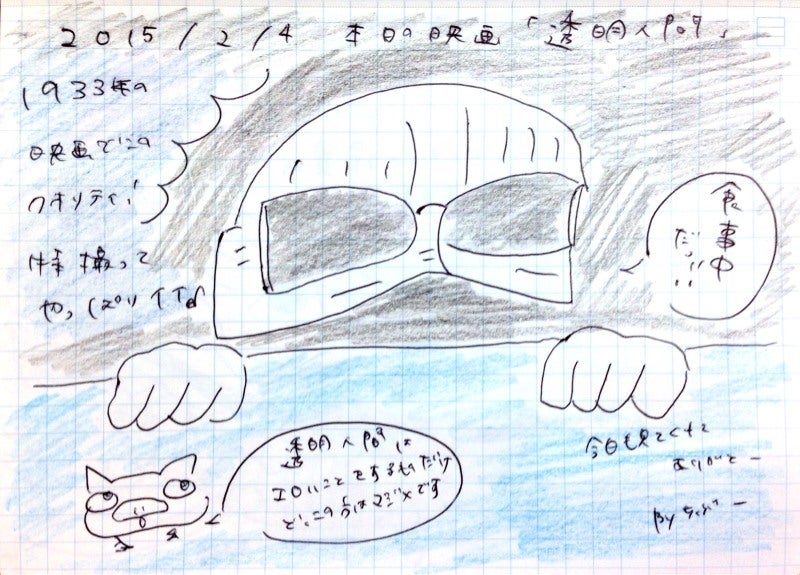 2015/2/4 本日の映画「透明人間」
1933年の
映画でこの
クオリティ!
特撮って
やっぱりイイ
食事中
だッ!!
透明人間は
エロいことするものだけ
どこの方はマジメです
今日も見てくれて
ありがとー
By